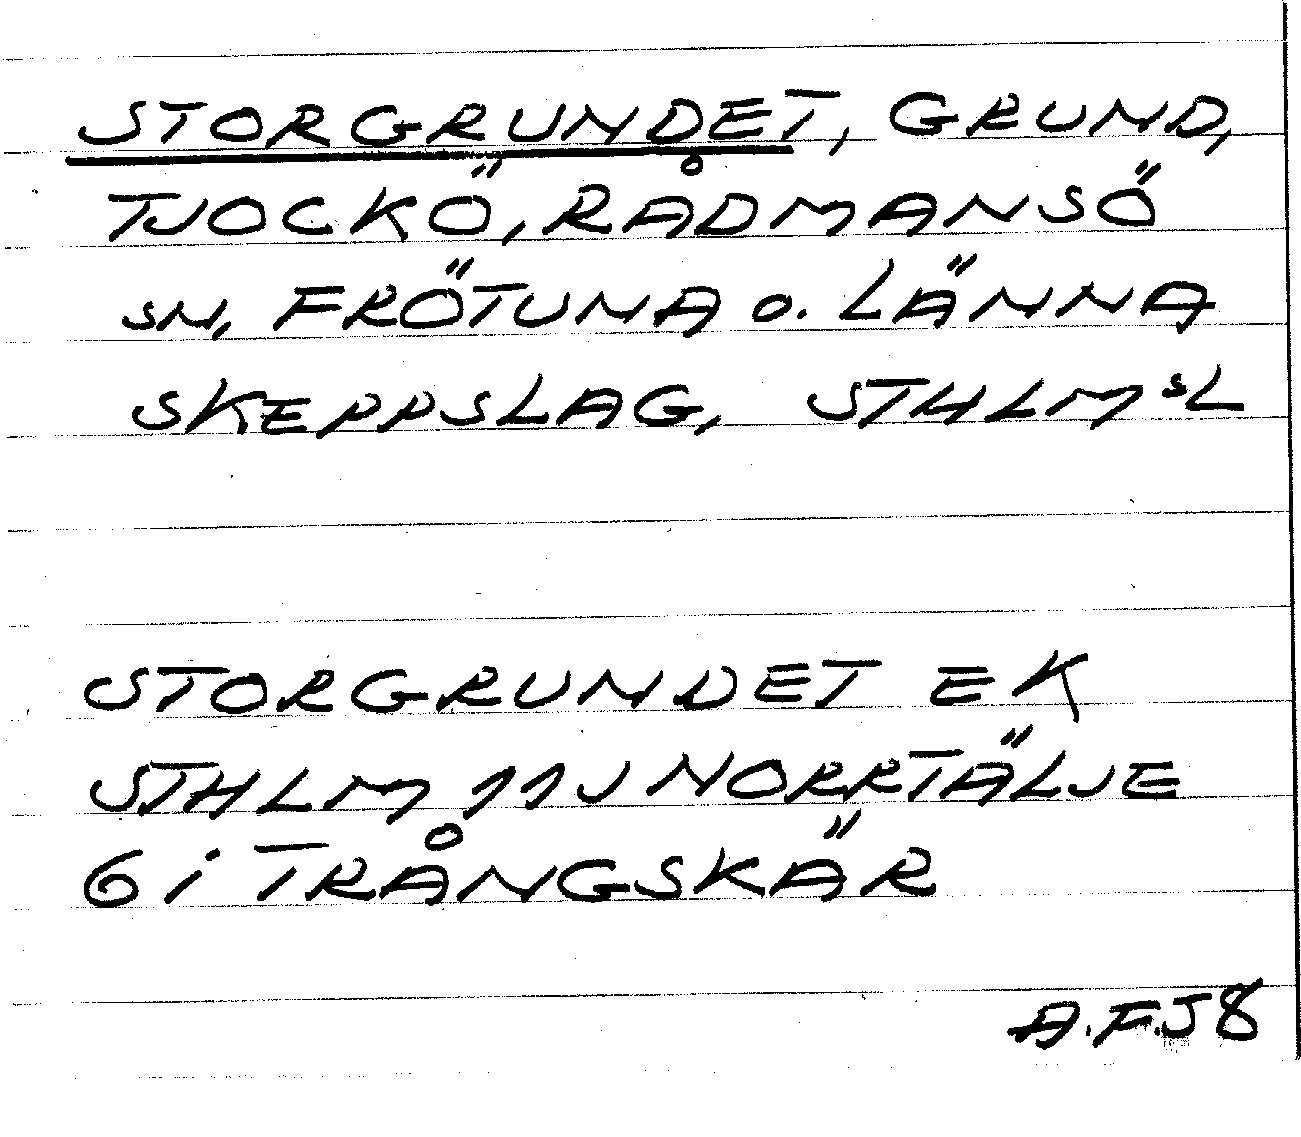 STORGRUNDET, GRUND,
TJOCKÖ, RÅDMANSÖ
SN, FRÖTUNA O. LÄNNA
SKEPPSLAG, STHLMSL
STORGRUNDET EK
STHLM 11J NORRTÄLJE
6 i TRÅNGSKÄR
A.F.J 8